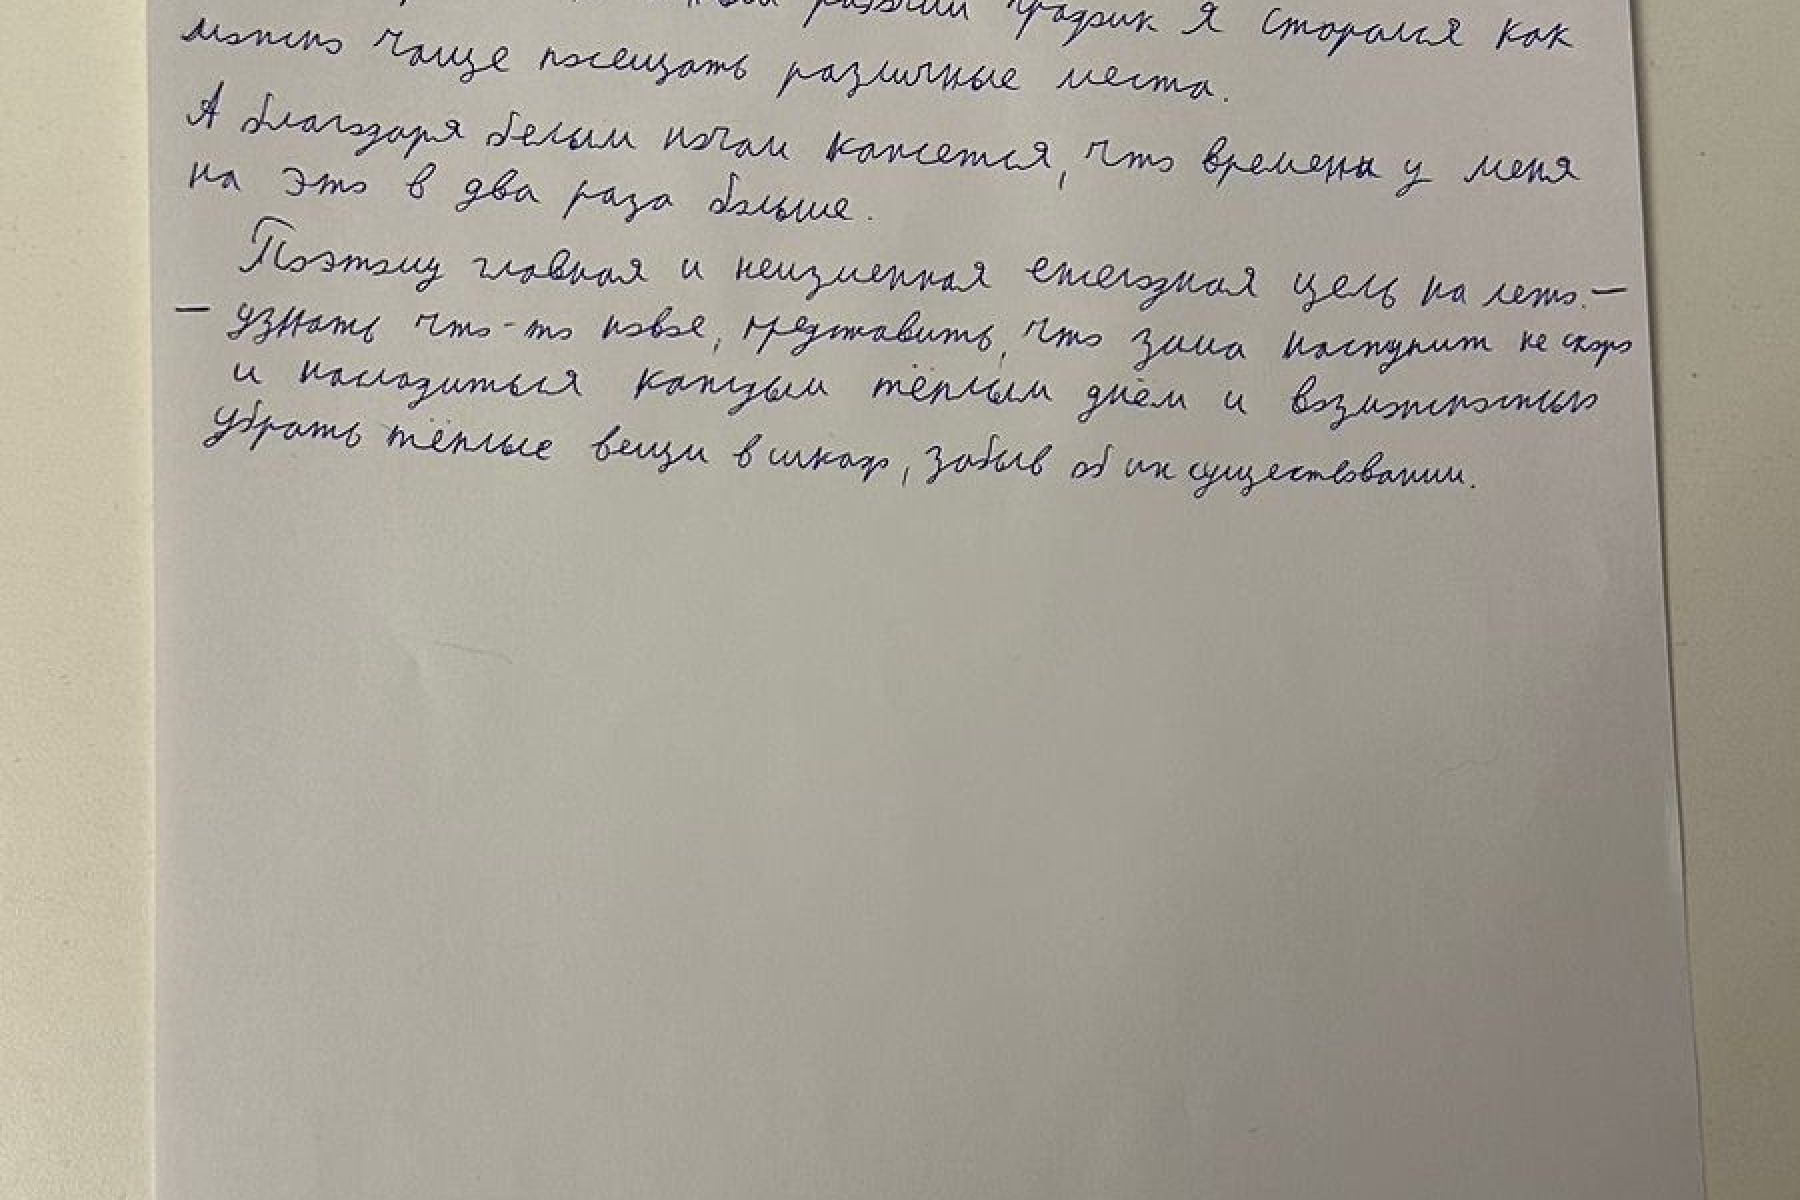 рабочий график я старался как
можно чаще посещать различные места.
А благодаря белым ночам кажется, что времени у меня
на это в два раза больше.
Поэтому главная и неизменная ежегодная цель на лето –
– узнать что-то новое, представить, что зима наступит не скоро
и насладиться каждым тёплым днём и возможностью
убрать тёплые вещи в шкаф, забыв об их существовании.